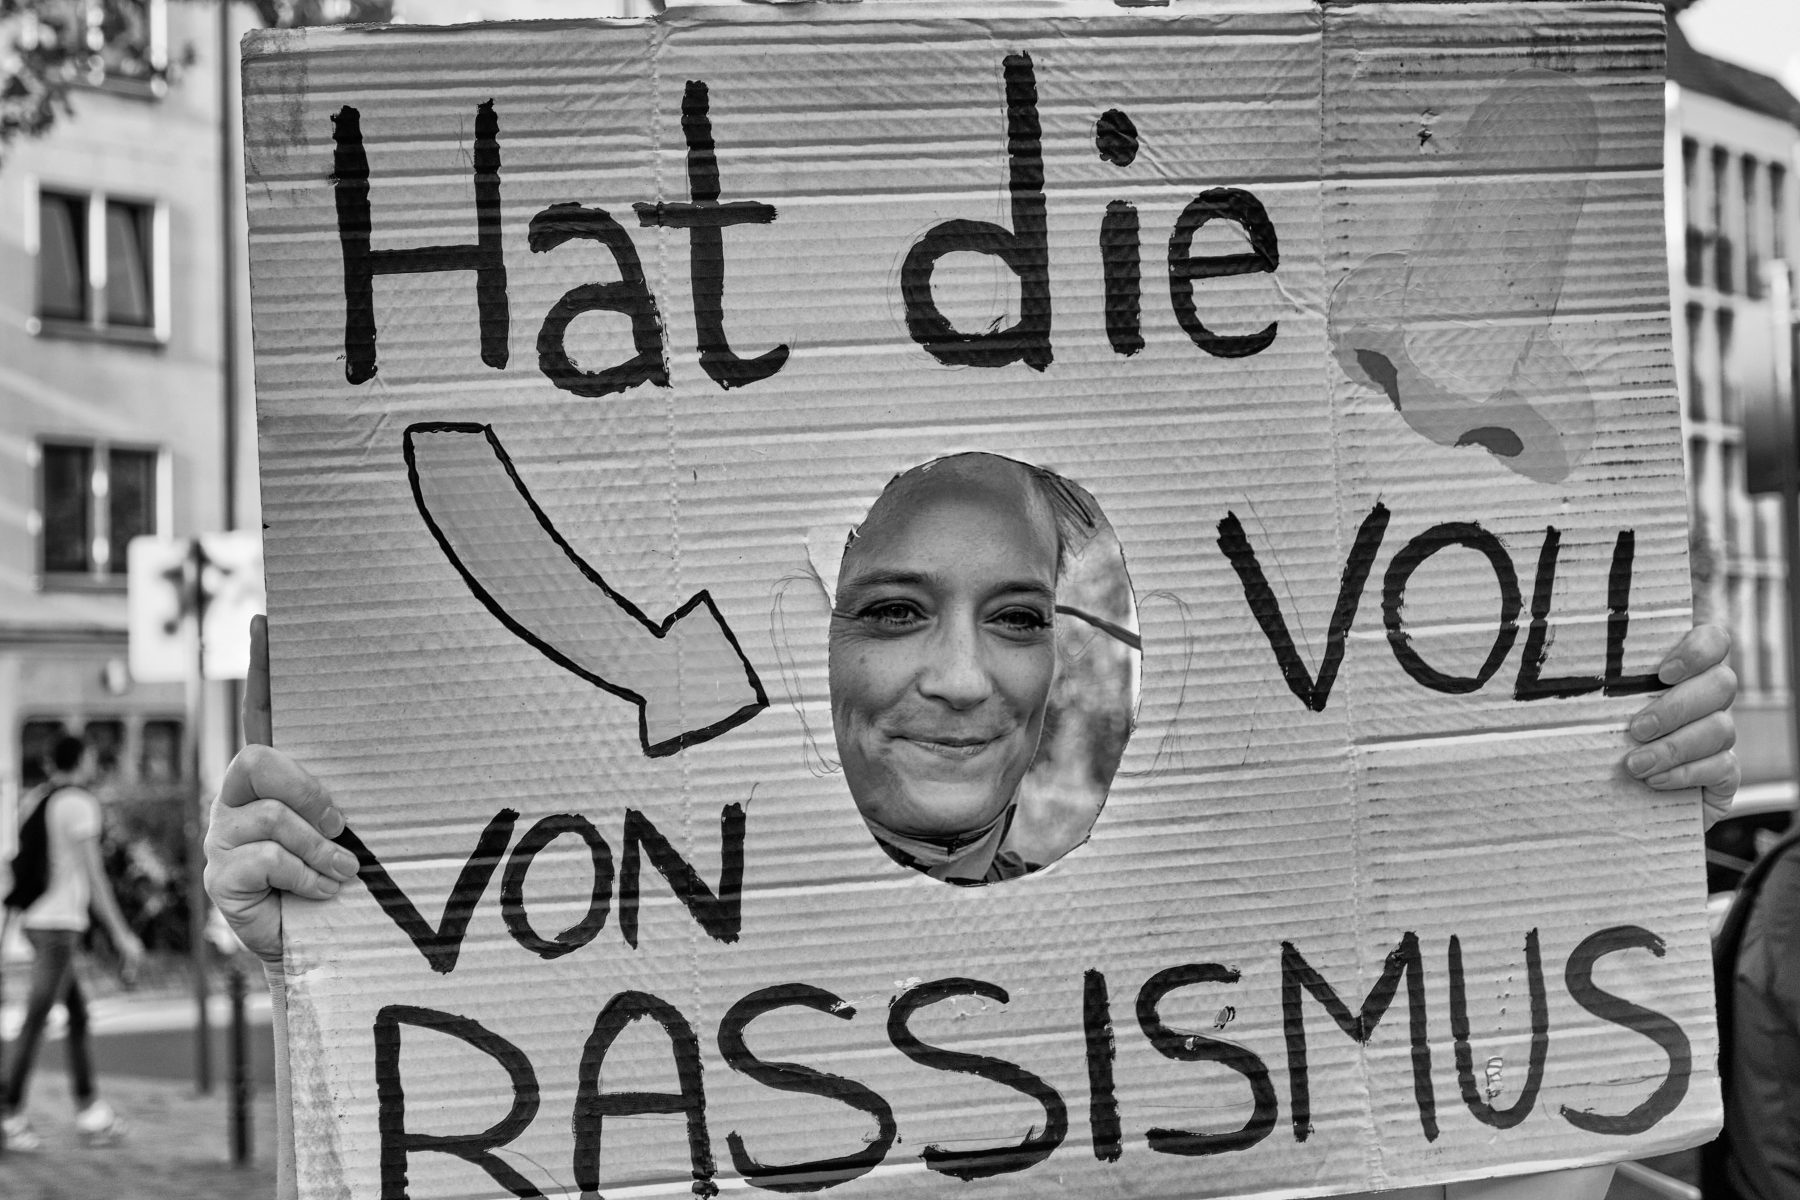 Hat die
VOLL
VON
RASSISMUS